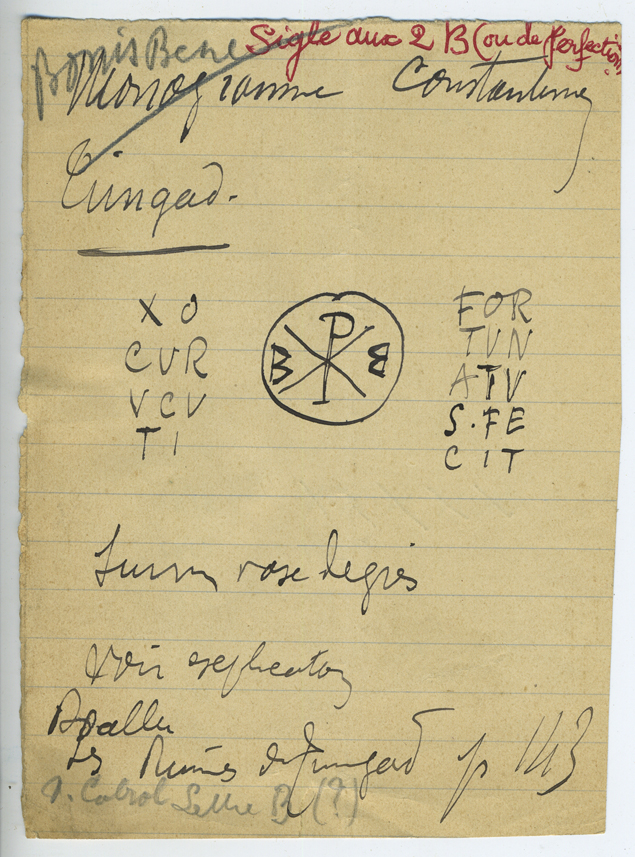 Bonis Bene Sigle aux 2 B (ou de perfection)
Monogramme Constantinien
Timgad.
X O
C V R
V C V
T I
B P B
F O R
T V N
A T V
S · F E
C I T
Sur un vase de grès
Voir explication
Ballu
Les Ruines de Timgad p 143
v. Cabrol Lettre B (?)